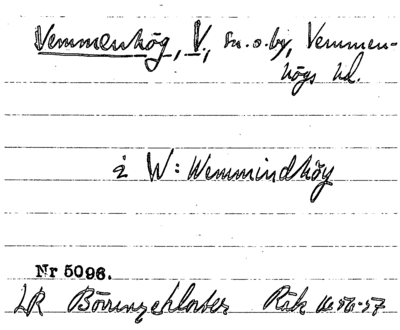 Vemmenhög, V., sn. o. by, Vemmen-
högs hd.
i W: Wemmindhöy
Nr 5096.
LR Börringekloster Räk 1656-57